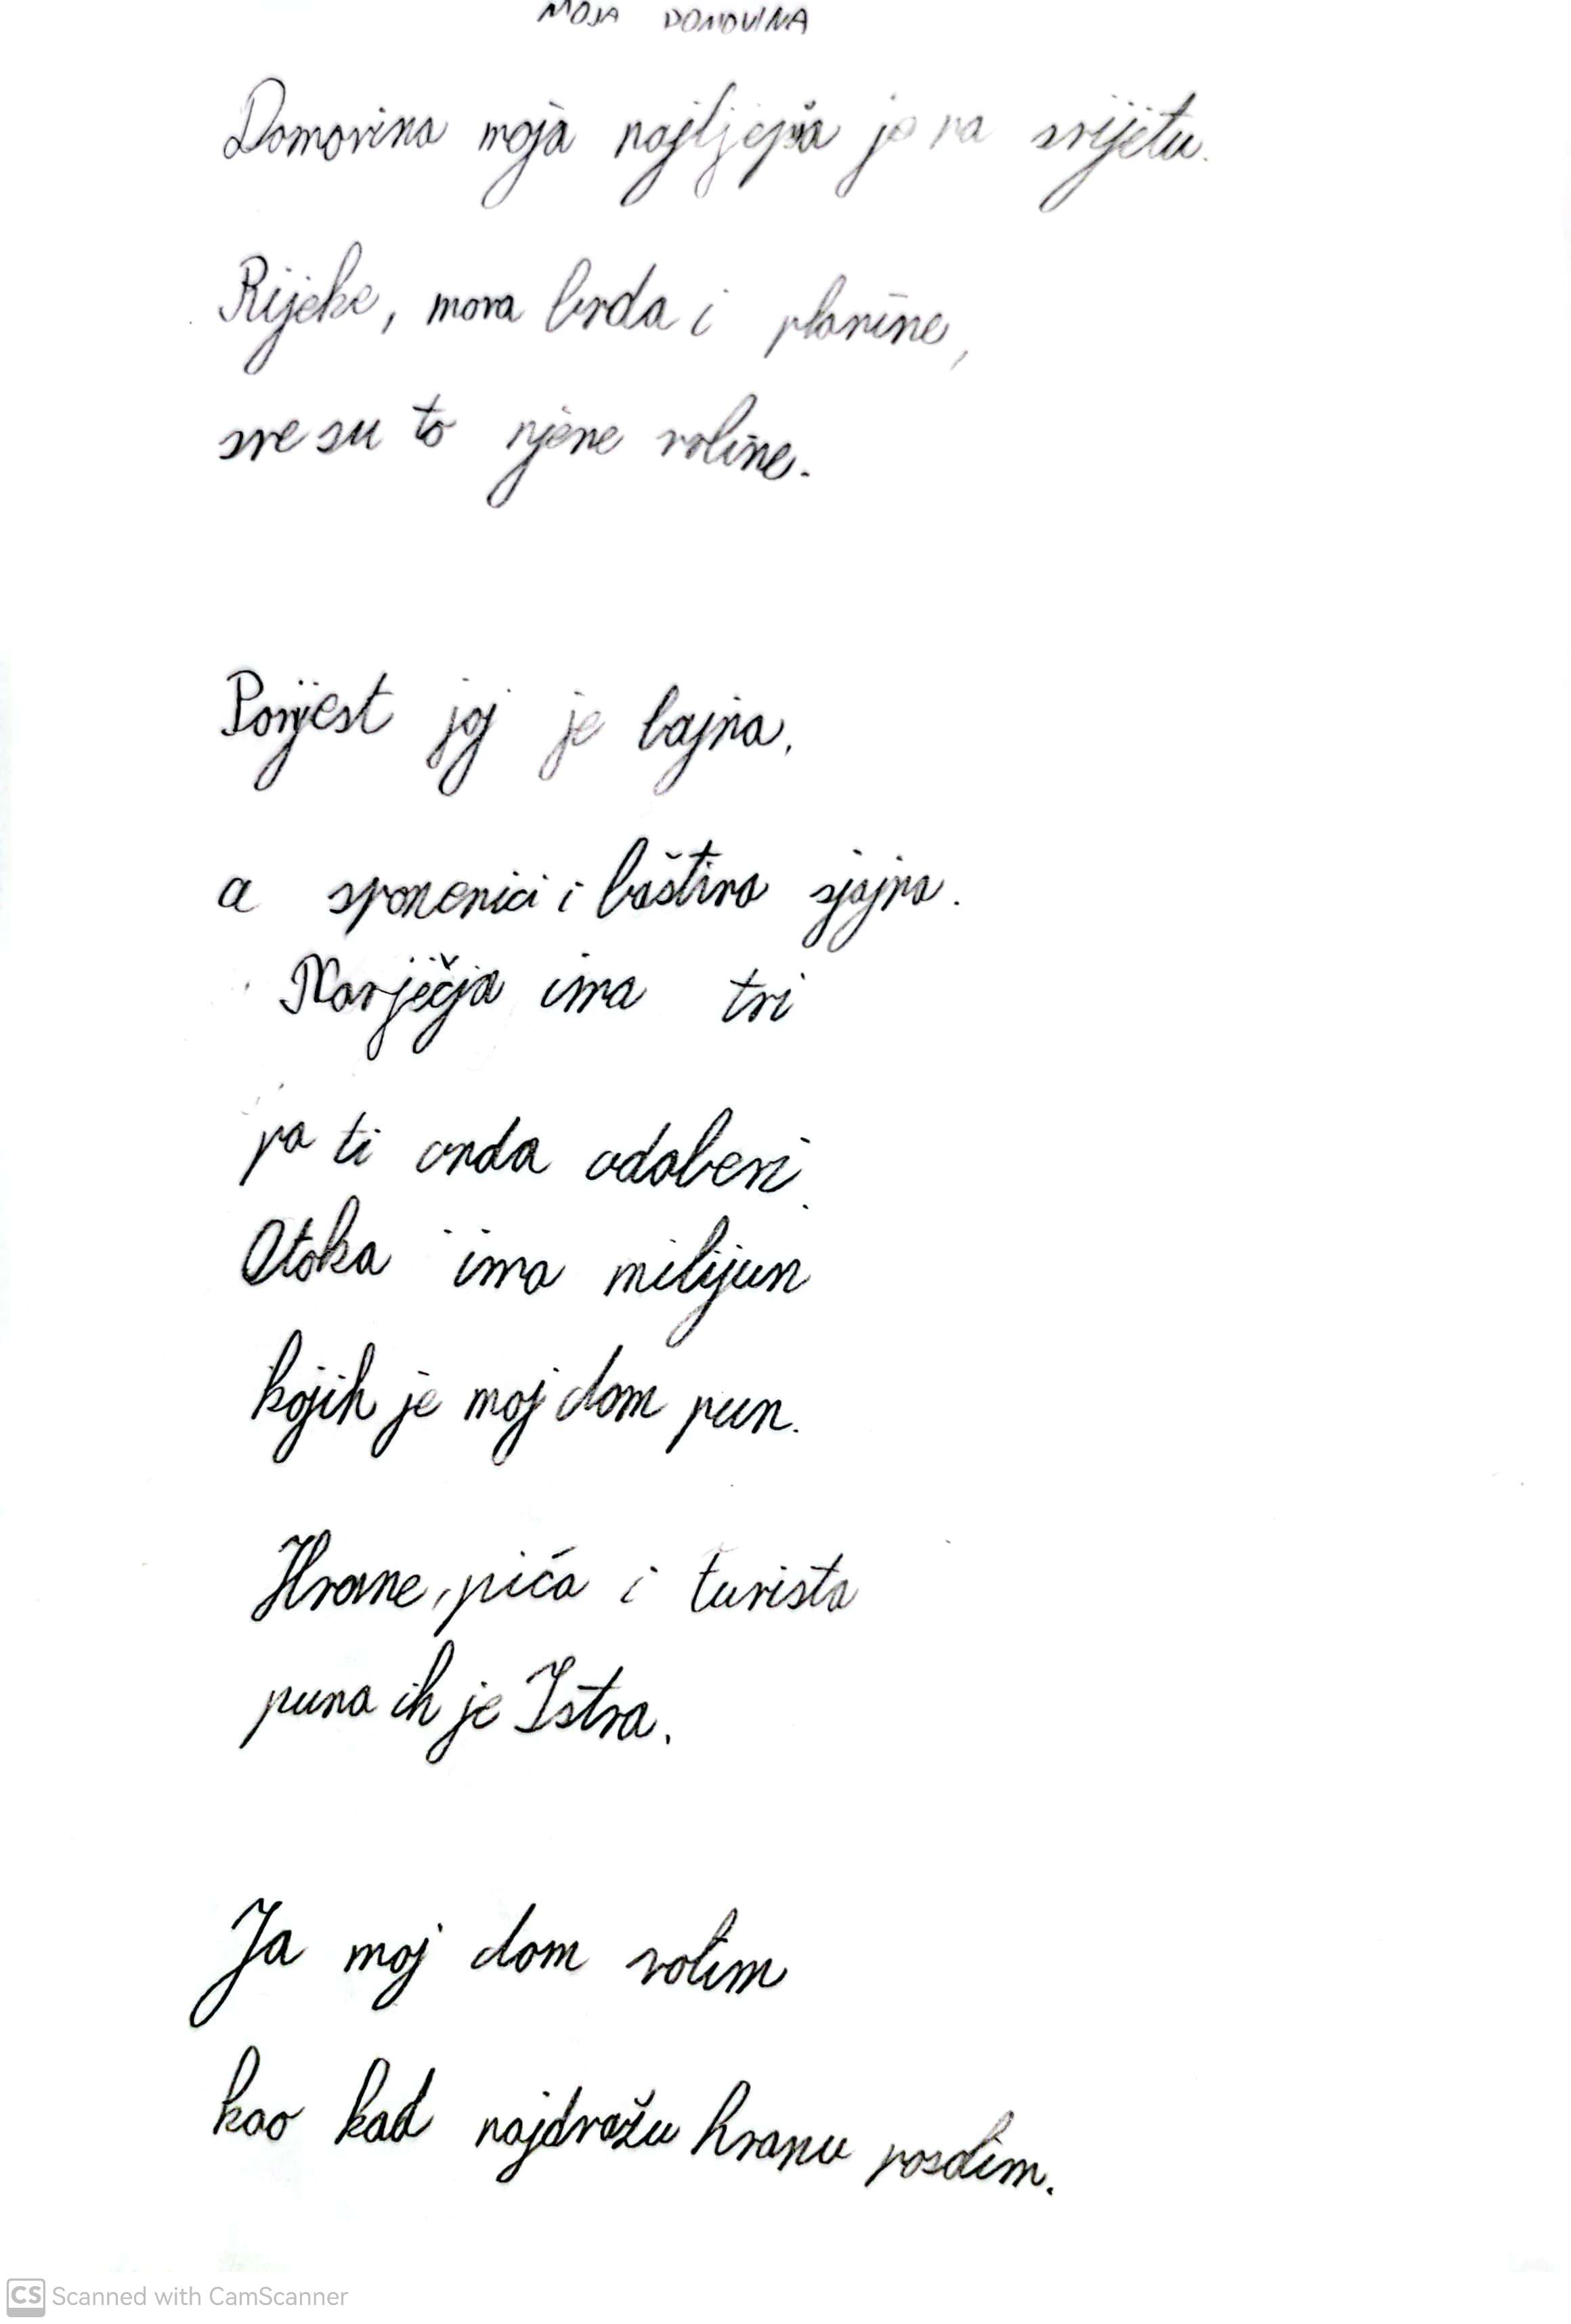 MOJA DOMOVINA
Domovina moja najljepša je na svijetu.
Rijeke, mora brda i planine,
sve su to njene vrline.
Povijest joj je bajna,
a spomenici i baština sjajna.
Narječja ima tri
pa ti onda odaberi.
Otoka ima milijun
kojih je moj dom pun.
Hrane, pića i turista
puna ih je Istra.
Ja moj dom volim
kao kad najdražu hranu posolim.
CS Scanned with CamScanner